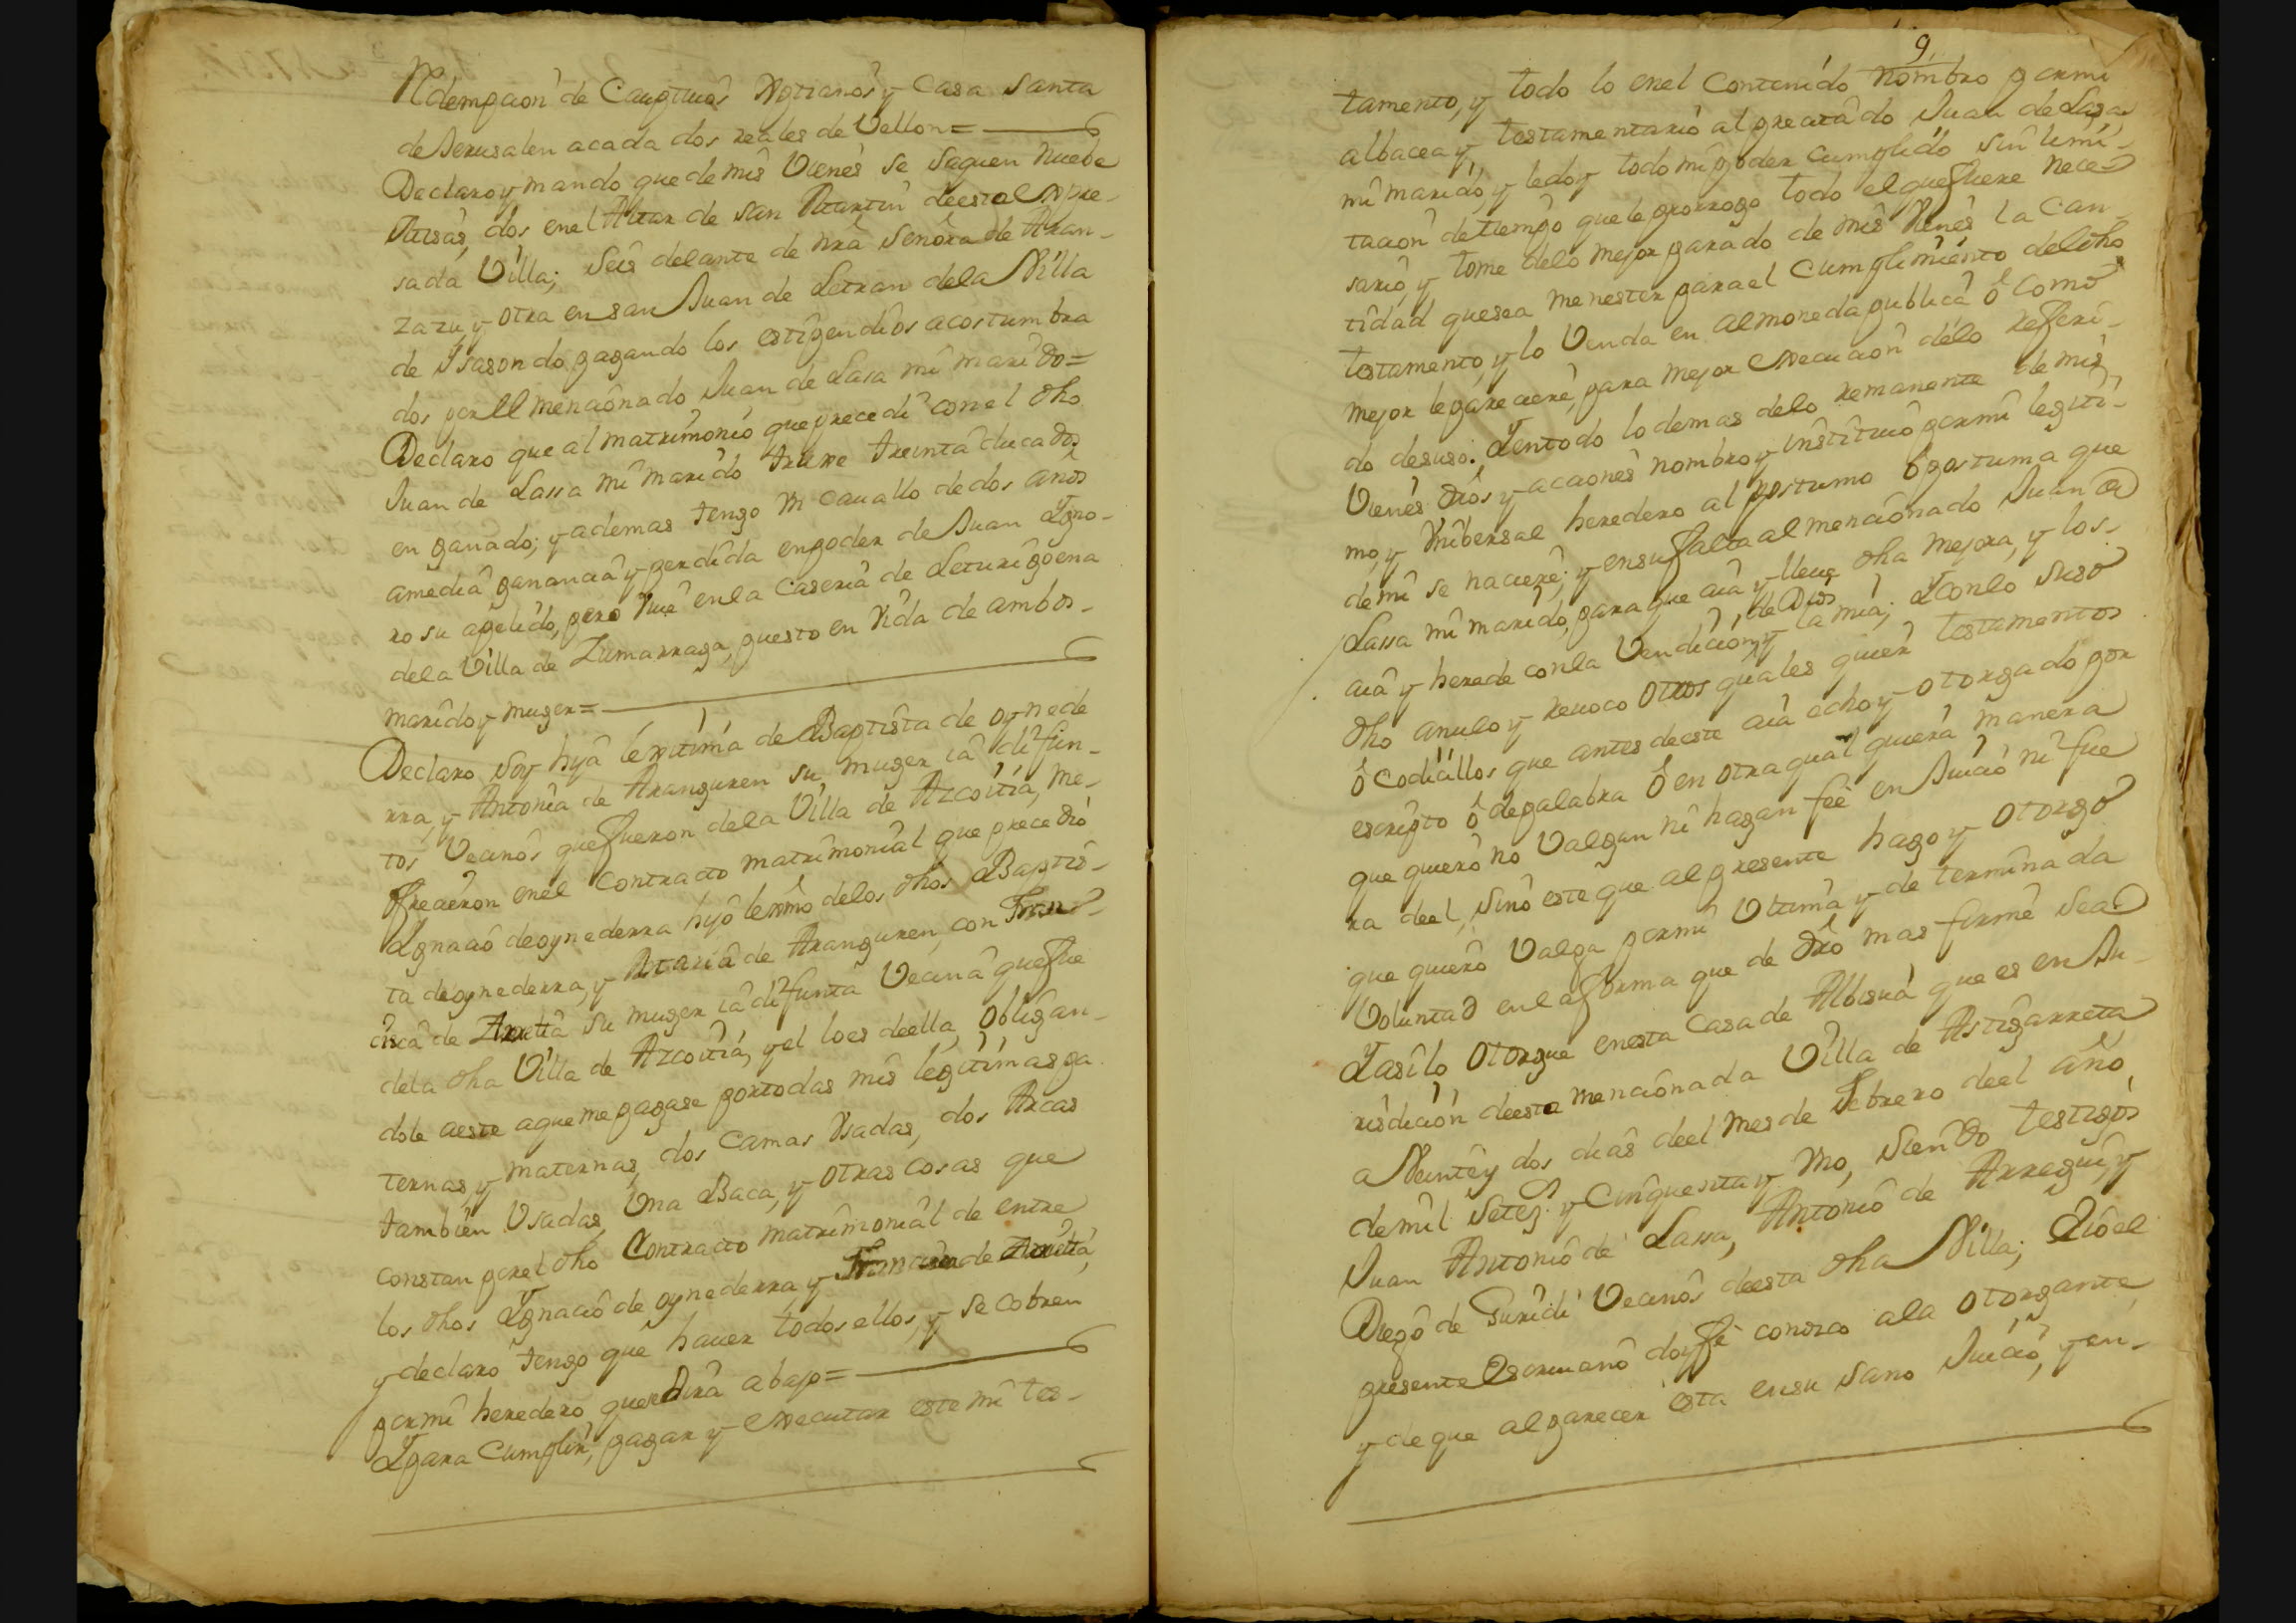 Redempcion de Cauptiuos Xptianos y Casa Santa
de Jerusalen acada dos reales de Vellon=
Declaro y mando que de mis Vienes se saquen nuebe
Misas, dos en el Altar de san Martin de esta expre-
sada Villa; Seis delante de nrã Señora de Aran-
zazu y otra en san Juan de Letran dela Villa
de Ysasondo pagando los estipendios acostumbra
dos por El mencionado Juan de Lasa mi marido=
Declaro que al matrimonio que precedi con el dho
Juan de Lassa mi marido truxe treinta ducados
en ganado; y ademas tengo Vn cauallo de dos años
amedia ganancia y perdida en poder de Juan Ygno-
ro su apelido, pero Viue en la Caseria de Leturigoena
dela Villa de Zumarraga, puesto en Vida de ambos
marido y muger=
Declaro soy hija lexitima de Baptista de oynede
rra, y Antonia de Aranguren su muger ia difun-
tos Vecinos que fueron dela Villa de Azcoitia, me
ofrecieron en el Contracto matrimonial que precedio
Ygnacio de oynederra hijo lexmo delos dhos Baptis-
ta de oynederra, y Maria de Aranguren, con Fran-
cisca de Arretia su muger ia difunta Vecina que fue
dela dha Villa de Azcoitia, y el lo es deella, obligan-
dole aeste aque me pagase por todas mis legitimas pa
ternas, y maternas, dos Camas Vsadas, dos Arcas
tambien Vsadas, Vna Baca, y otras cosas que
constan por el dho Contracto matrimonial de entre
los dhos Ygnacio de oynederra y Francisca de Arretia,
y declaro tengo que hauer todos ellos, y se cobren
por mi heredero, que se dira abajo=
Ypara Cumplir, pagar y executar este mi tes-
9
tamento, y todo lo enel Contenido nombro por mi
albacea y testamentario al precitado Juan de Lasa
mi marido, y ledoy todo mi poder cumplido sin limi-
tacion de tiempo que le prorrogo todo el que fuere nece
sario, y tome delo mejor parado de mis Vienes la Can-
tidad que sea menester para el Cumplimiento del dho
testamento, y lo Venda en almoneda publica ó Como
mejor le pareciere, para mejor execucion delo referi-
do desuso. Yentodo lo demas delo remanente de mis
Vienes drõs y acciones nombro y instituio por mi legiti-
mo, y Vnibersal heredero al postumo ó postuma que
demi se naciere; y en su falta al mencionado Juan de
Lassa mi marido, para que aia y lleue dha mejora, y los
aia y herede con la Vendicion de Dios y la mia; Yconlo suso
dho anulo y reuoco otros quales quier testamentos
ó Codicillos que antes deeste aia echo y otorgado por
escripto ó de palabra ó en otra qual quiera manera
que quiero no Valgan ni hagan feê en Juicio ni fue
ra deel, sino este que al presente hago y otorgo
que quiero Valga por mi Vltima y de terminada
Voluntad en la forma que de drõ mas firme sea
Yasi lo otorgue en esta Casa de Albisua que es en Ju-
risdicion deesta mencionada Villa de Astigarreta
a Veinte y dos dias deel mes de Febrero deel año
de mil setez.s y Cinquenta y Vno, siendo testigos
Juan Antonio de Lassa, Antonio de Arregui, y
Diego de Guridi Vecinos deesta dha Villa; Eio el
presente Escriuano doy fê conozco ala otorgante
y de que al parecer esta en su sano Juicio, y en-